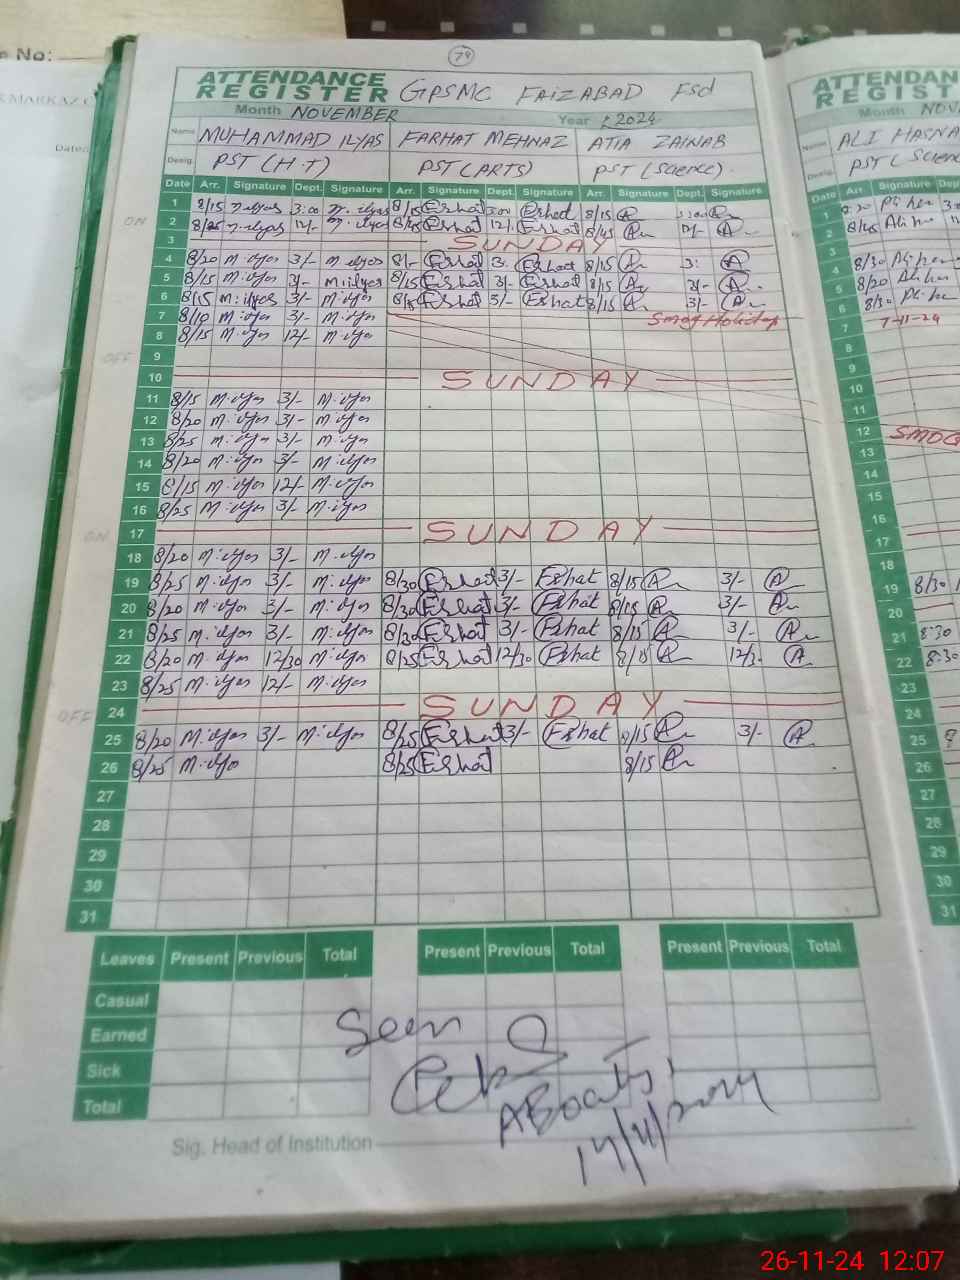 e No:
MARKAZ C
Date:
74
ATTENDANCE
REGISTER GPSMC FAIZABAD Fsd
Month NOVEMBER Year 2024
Name MUHAMMAD ILYAS FARHAT MEHNAZ ATIA ZAINAB
Desig. PST (H.T) PST (ARTS) PST (Science).
Date Arr. Signature Dept. Signature Arr. Signature Dept. Signature Arr. Signature Dept. Signature
ON
1 8/15 M.ilyas 3:00 M.ilyas 8/15 Eshat 3:00 Eshat 8/15 3:00
2 8/25 M.ilyas 12/- M.ilyas 8/45 Eshat 12/- Eshat 8/45 12/-
3 SUNDAY
4 8/20 M.ilyas 3/- M.ilyas 8/- Eshat 3: Eshat 8/15 3:
5 8/15 M.ilyas 3/- M.ilyas 8/15 Eshat 3/- Eshat 8/15 3/-
6 8/15 M.ilyas 3/- M.ilyas 8/15 Eshat 3/- Eshat 8/15 3/-
7 8/10 M.ilyas 3/- M.ilyas Smog Holiday
8 8/15 M.ilyas 12/- M.ilyas
OFF
9
10 SUNDAY
11 8/15 M.ilyas 3/- M.ilyas
12 8/20 M.ilyas 3/- M.ilyas
13 8/25 M.ilyas 3/- M.ilyas
14 8/20 M.ilyas 3/- M.ilyas
15 8/15 M.ilyas 12/- M.ilyas
16 8/25 M.ilyas 3/- M.ilyas
ON
17 SUNDAY
18 8/20 M.ilyas 3/- M.ilyas
19 8/25 M.ilyas 3/- M.ilyas 8/30 Eshat 3/- Eshat 8/15 3/-
20 8/20 M.ilyas 3/- M.ilyas 8/30 Eshat 3/- Eshat 8/15 3/-
21 8/25 M.ilyas 3/- M.ilyas 8/30 Eshat 3/- Eshat 8/15 3/-
22 8/20 M.ilyas 12/30 M.ilyas 8/25 Eshat 12/30 Eshat 8/15 12/3
23 8/25 M.ilyas 12/- M.ilyas
OFF
24 SUNDAY
25 8/20 M.ilyas 3/- M.ilyas 8/25 Eshat 3/- Eshat 8/15 3/-
26 8/25 M.ilyas 8/25 Eshat 8/15
27
28
29
30
31
Leaves Present Previous Total Present Previous Total Present Previous Total
Casual
Earned
Sick
Total
Seen
Sig. Head of Institution
ATTENDAN
REGIST
Month NOV
Name ALI HASNA
Desig. PST (Scienc
Date Arr. Signature Dep
1
2 8/45
3
4 8/30
5 8/20
6 8/30
7 7-11-24
8
9
10
11
12 SMOG
13
14
15
16
17
18
19 8/30
20
21 8:30
22 8:30
23
24
25
26
27
28
29
30
31
26-11-24 12:07